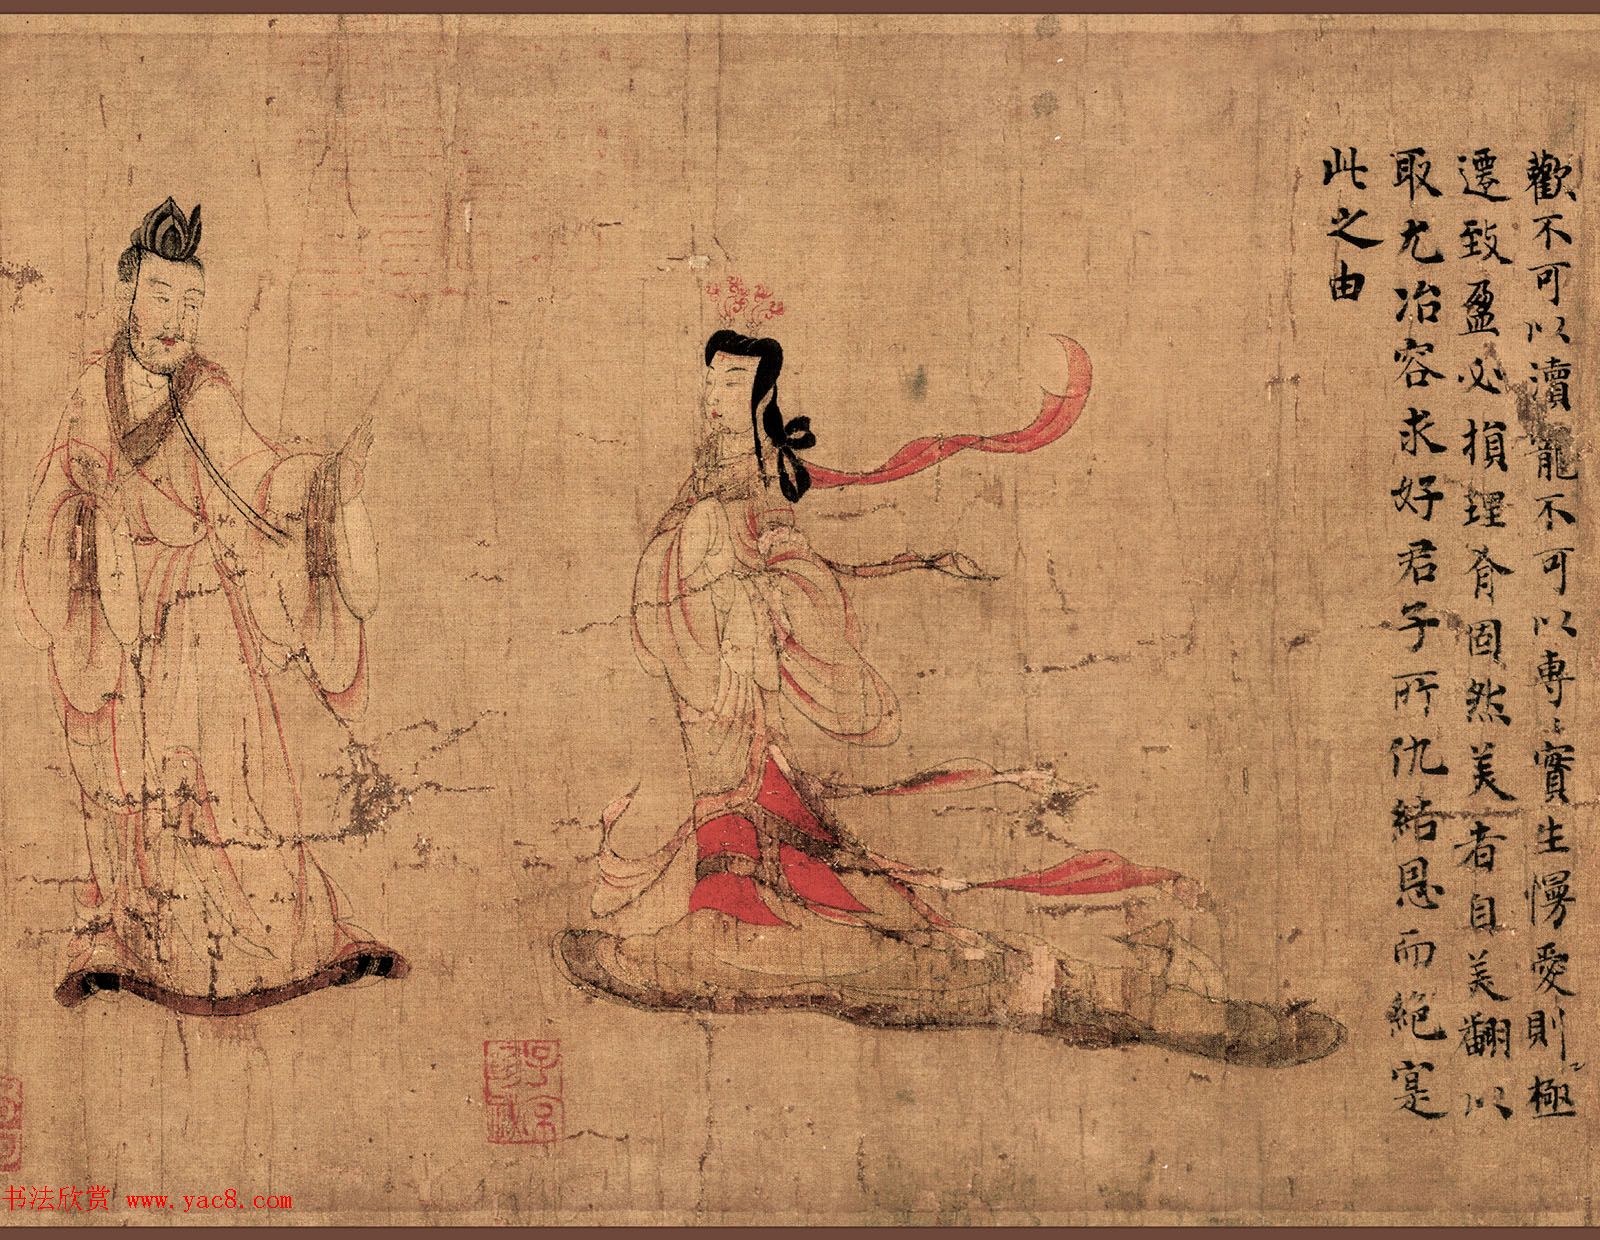 歡不可以瀆寵不可以專專實生慢愛則極
遷致盈必損理有固然美者自美翩以
取尤冶容求好君子所仇結恩而絕寔
此之由
书法欣赏 www.yac8.com